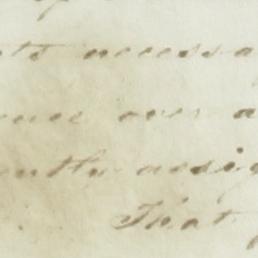 nts necessa
ence over a
ently assig
That